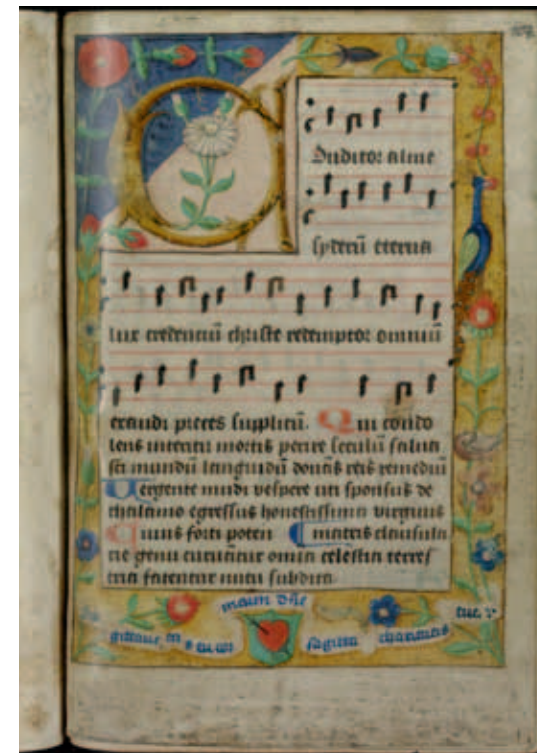 Conditor alme
syderū eterna
lux credentiū christe redemptor omniū
exaudi preces supplicū. Qui condo
lens interitu mortis perire seculū salua
sti mundū languidū donās reis remediū
Uergente mūdi vespere uti sponsus de
thalamo egressus honestissima virginis
Cuius forti poten matris clausula
tie genu curuātur omīa celestia terres
tria fatentur nutu subdita
meum dñe
sagitta charitatis
tue